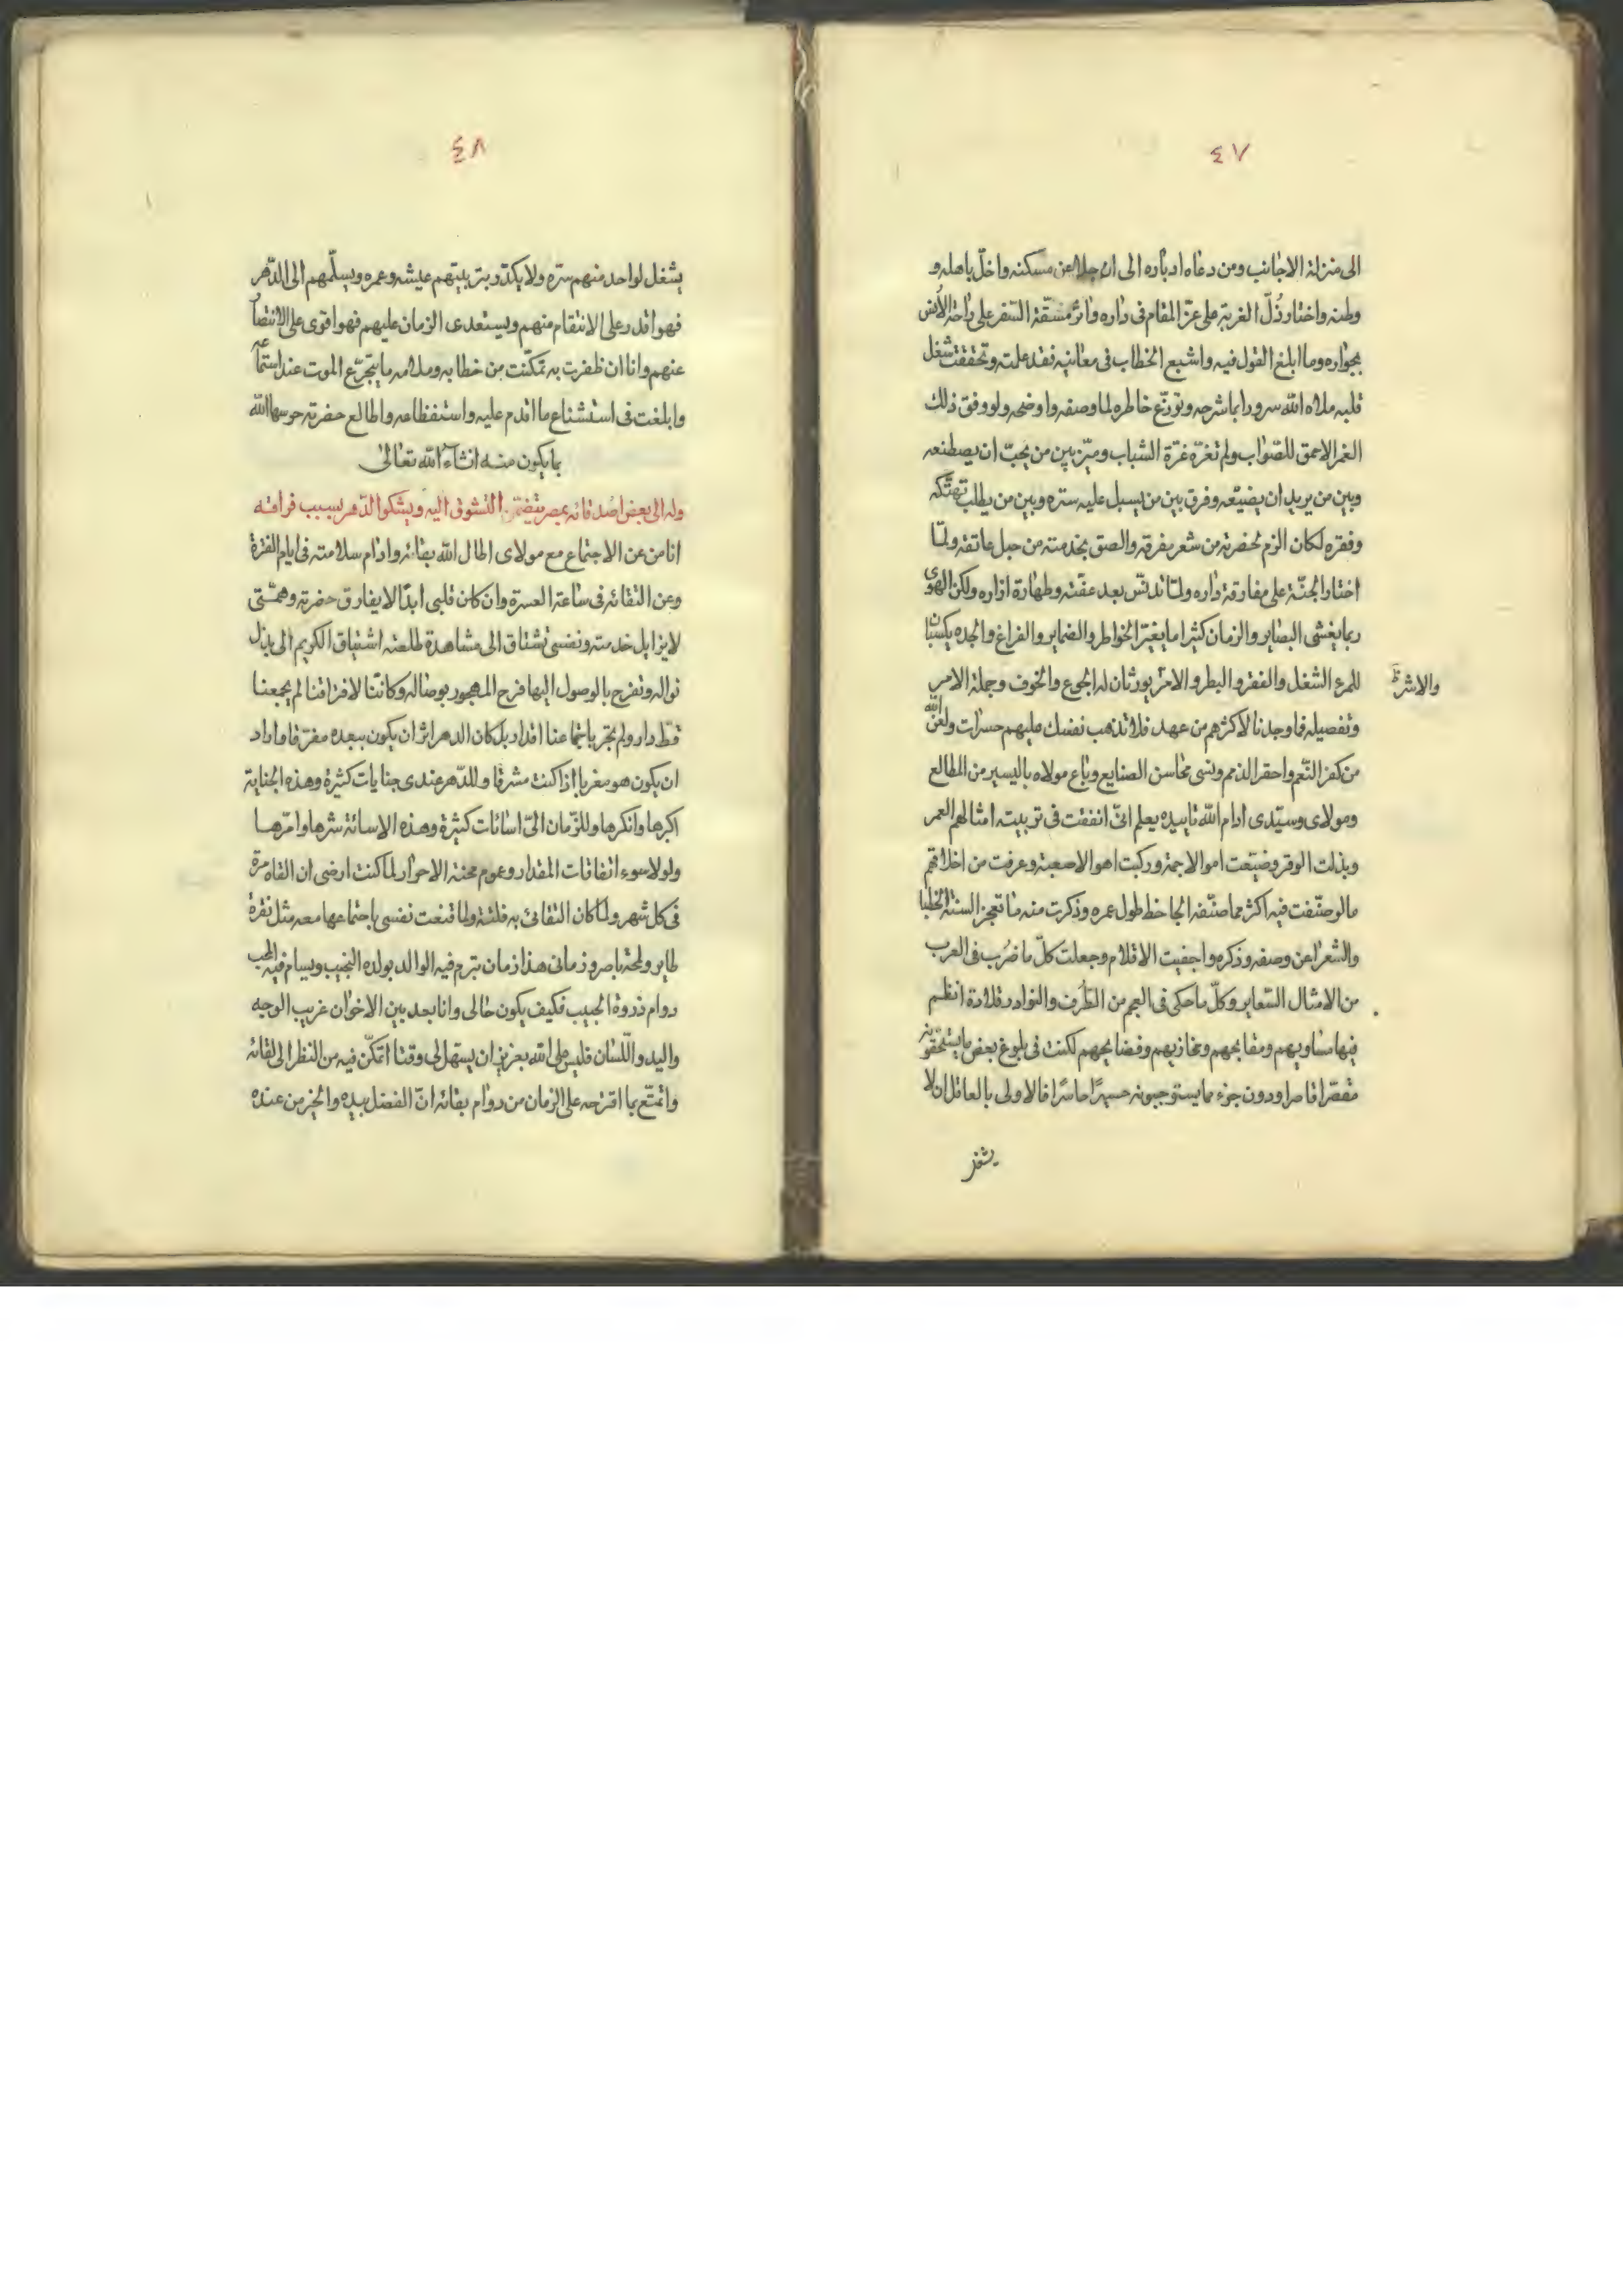 ٤٧
الى منزلة الاجانب ومن دعاه ادباره الى ان جلا عن مسكنه واخلّ باهله و
وطنه واختار ذُلّ الغربة على عزّ المقام فى داره واثر مشقّة السّفر على راحة الأنس
بجواره وما ابلغ القول فيه واشبع الخطاب فى معانيه فقد علمته وتحققت شغل
قلبه ملاه الله سرورا بما شرحه وتوزّع خاطره لما وصفه واوضحه ولو وفق ذلك
الغمر الاحمق للصّواب ولم تغرّه غرّة الشباب وميّز بين من يحبّ ان يصطنعه
وبين من يريد ان يضيّعه وفرق بين من يسبل عليه ستره وبين من يطلب تهتّكه
وفقره لكان الزم لحضرته من شعر مفرقه والصق بخدمته من حبل عاتقه ولما
اختار الجنّة على مفارقة داره ولما تدنّس بعد عفّته وطهارة ازاره ولكن الهوى
ربما يغشى البصاير والزمان كثيرا ما يغيّر الخواطر والضماير والفراغ والجده يكسبان
للمرء الشغل والفقر والبطر والامر يورثان له الجوع والخوف وجملة الامر
والاشر ظ
وتفصيله فما وجدنا لاكثرهم من عهد فلا تذهب نفسك عليهم حسرات ولعن الله
من كفر النّعم واحقر الذمم ونسى محاسن الصنايع وباع مولاه باليسير من المطالع
ومولاى وسيّدى ادام الله تاييده يعلم انىّ انفقت فى تربيته امثالهم العمر
وبذلت الوفر وضيّعت اموالا جمة وركبت اهوالا صعبة وعرفت من اخلاقهم
ما لو صنّفت فيه اكثر مما صنّفه الجاحظ طول عمره وذكرت منه ما تعجز السنة الخطبا
والشعرا عن وصفه وذكره واحفيت الاقلام وجعلت كلّ ما ضُرب فى العرب
من الامثال السّعاير وكلّ ما حكى فى العجم من الطُرف والنوادر قلادة انظم
فيها مساويهم ومقابحهم ومخازيهم وفضايحهم لكنت فى بلوغ بعض ما يستحقونه
مقصّرا قاصرا ودون جزء مما يستوجبونه حسيرًا حاسرًا فالاولى بالعاقل ان لا
يشغل
٤٨
يشغل لواحد منهم سرّه ولا يكدّر بتربيتهم عيشه وعمره ويسلّمهم الى الدّهر
فهو اقدر على الانتقام منهم ويستعدى الزمان عليهم فهو اقوى على الانتصاُ
عنهم وانا ان ظفرت به تمكّنت من خطابه وملامه ما يتجرّع الموت عند استماعه
وابلغت فى استشناع ما اقدم عليه واستفظاعه واطالع حضرته حرسها الله
بما يكون منه انشاء الله تعالىٰ
وله الى بعض اصدقائه بمصر يتضمّن التشوق اليه ويشكوا الدّهر بسبب فراقه
انا من عن الاجتماع مع مولاى اطال الله بقائه وادام سلامته فى ايام الفترة
وعن التقائه فى ساعة العسرة وان كان قلبى ابدًا لا يفارق حضرته وهمّتى
لا يزايل خدمته ونفسى تشتاق الى مشاهدة طلعته اشتياق الكريم الى بذل
نواله وتفرح بالوصول اليها فرح المهجور بوصاله وكانّنا لافتراقنا لم يجمعنا
قطّ دار ولم تجر باجتماعنا اقدار بل كان الدهر اثر ان يكون ببعده مفرّقا واراد
ان يكون هو مغربا اذا كنت مشرقا وللدّهر عندى جنايات كثيرة وهذه الجناية
اكبرها وانكرها وللزّمان الىّ اسائات كثيرة وهذه الاسائة شرها وامرّها
ولولا سوء اتفاقات المقدار وعموم محنة الاحرار لما كنت ارضى ان القاه مرة
فى كل شهر ولما كان التقائى به فلتة ولما قنعت نفسى باجتماعها معه مثل نقرة
طاير ولمحة باصر وزمانى هذا زمان تبرم فيه الوالد بولده النجيب ويسام فيه المحب
دوام ذروة الحبيب فكيف يكون حالى وانا بعد بين الاخوان غريب الوجه
واليد واللّسان فليس على الله بعزيز ان يسهل لى وقتا اتمكّن فيه من النظر الى لقائه
واتمتّع بما اقترحه على الزمان من دوام بقائه انّ الفضل بيده والخير من عنده